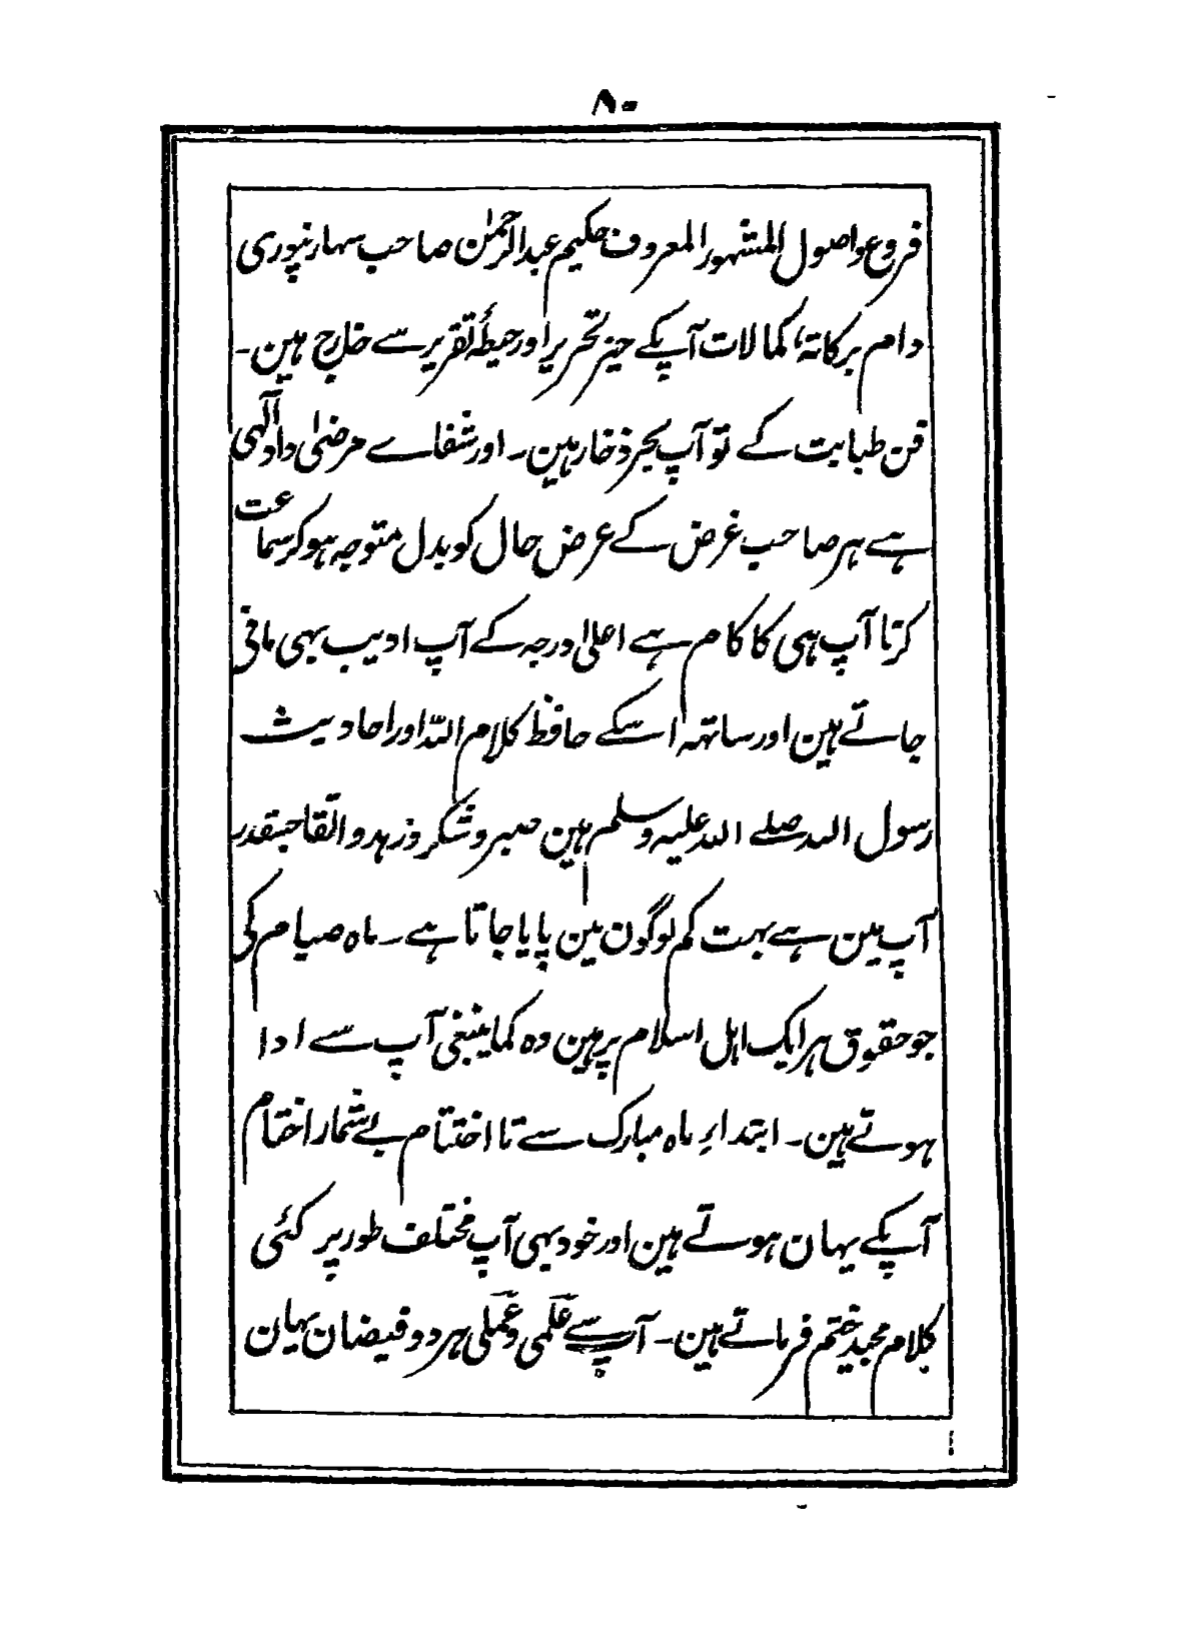 ۸۰
فروع واصول المشہور المعروف حکیم عبدالرحمٰن صاحب سہارنپوری
دام برکاتہٗ کمالات آپکے حیز تحریر اور حیطۂ تقریر سے خارج ہین۔
فن طبابت کے تو آپ بحر ذخار ہین۔ اور شفاے مرضیٰ داد آلٰہی
ہے ہر صاحب غرض کے عرض حال کو بدل متوجہ ہو کر سماعت
کرنا آپ ہی کا کام ہے اعلیٰ درجہ کے آپ ادیب بہی مانی
جاتے ہین اور ساتہہ اسکے حافظ کلام اللہ اور احادیث
رسول اللہ صلے اللہ علیہ وسلم ہین صبر و شکر و زہد و اتقا جسقدر
آپ مین ہے بہت کم لوگون مین پایا جاتا ہے۔ ماہ صیام کی
جو حقوق ہر ایک اہل اسلام پر ہین وہ کما ینبغی آپ سے ادا
ہوتے ہین۔ ابتداءِ ماہ مبارک سے تا اختتام بے شمار اختام
آپکے یہان ہوتے ہین اور خود بہی آپ مختلف طور پر کئی
کلام مجید ختم فرماتے ہین۔ آپ سے علمی و عملی ہر دو فیضان یہان